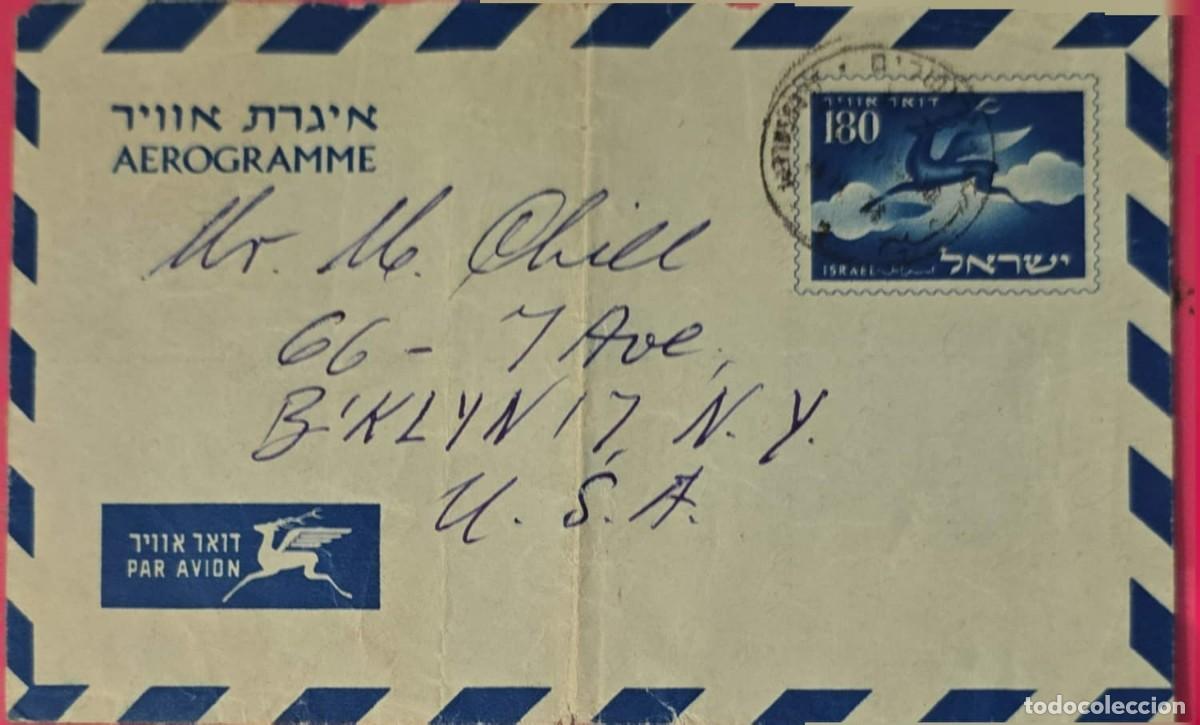 איגרת אוויר
AEROGRAMME
דואר אוויר
180
ISRAEL ישראל
Mr. M. Chill
66 - 7 Ave,
B'KLYN 17, N.Y.
U.S.A.
דואר אוויר
PAR AVION
todocoleccion